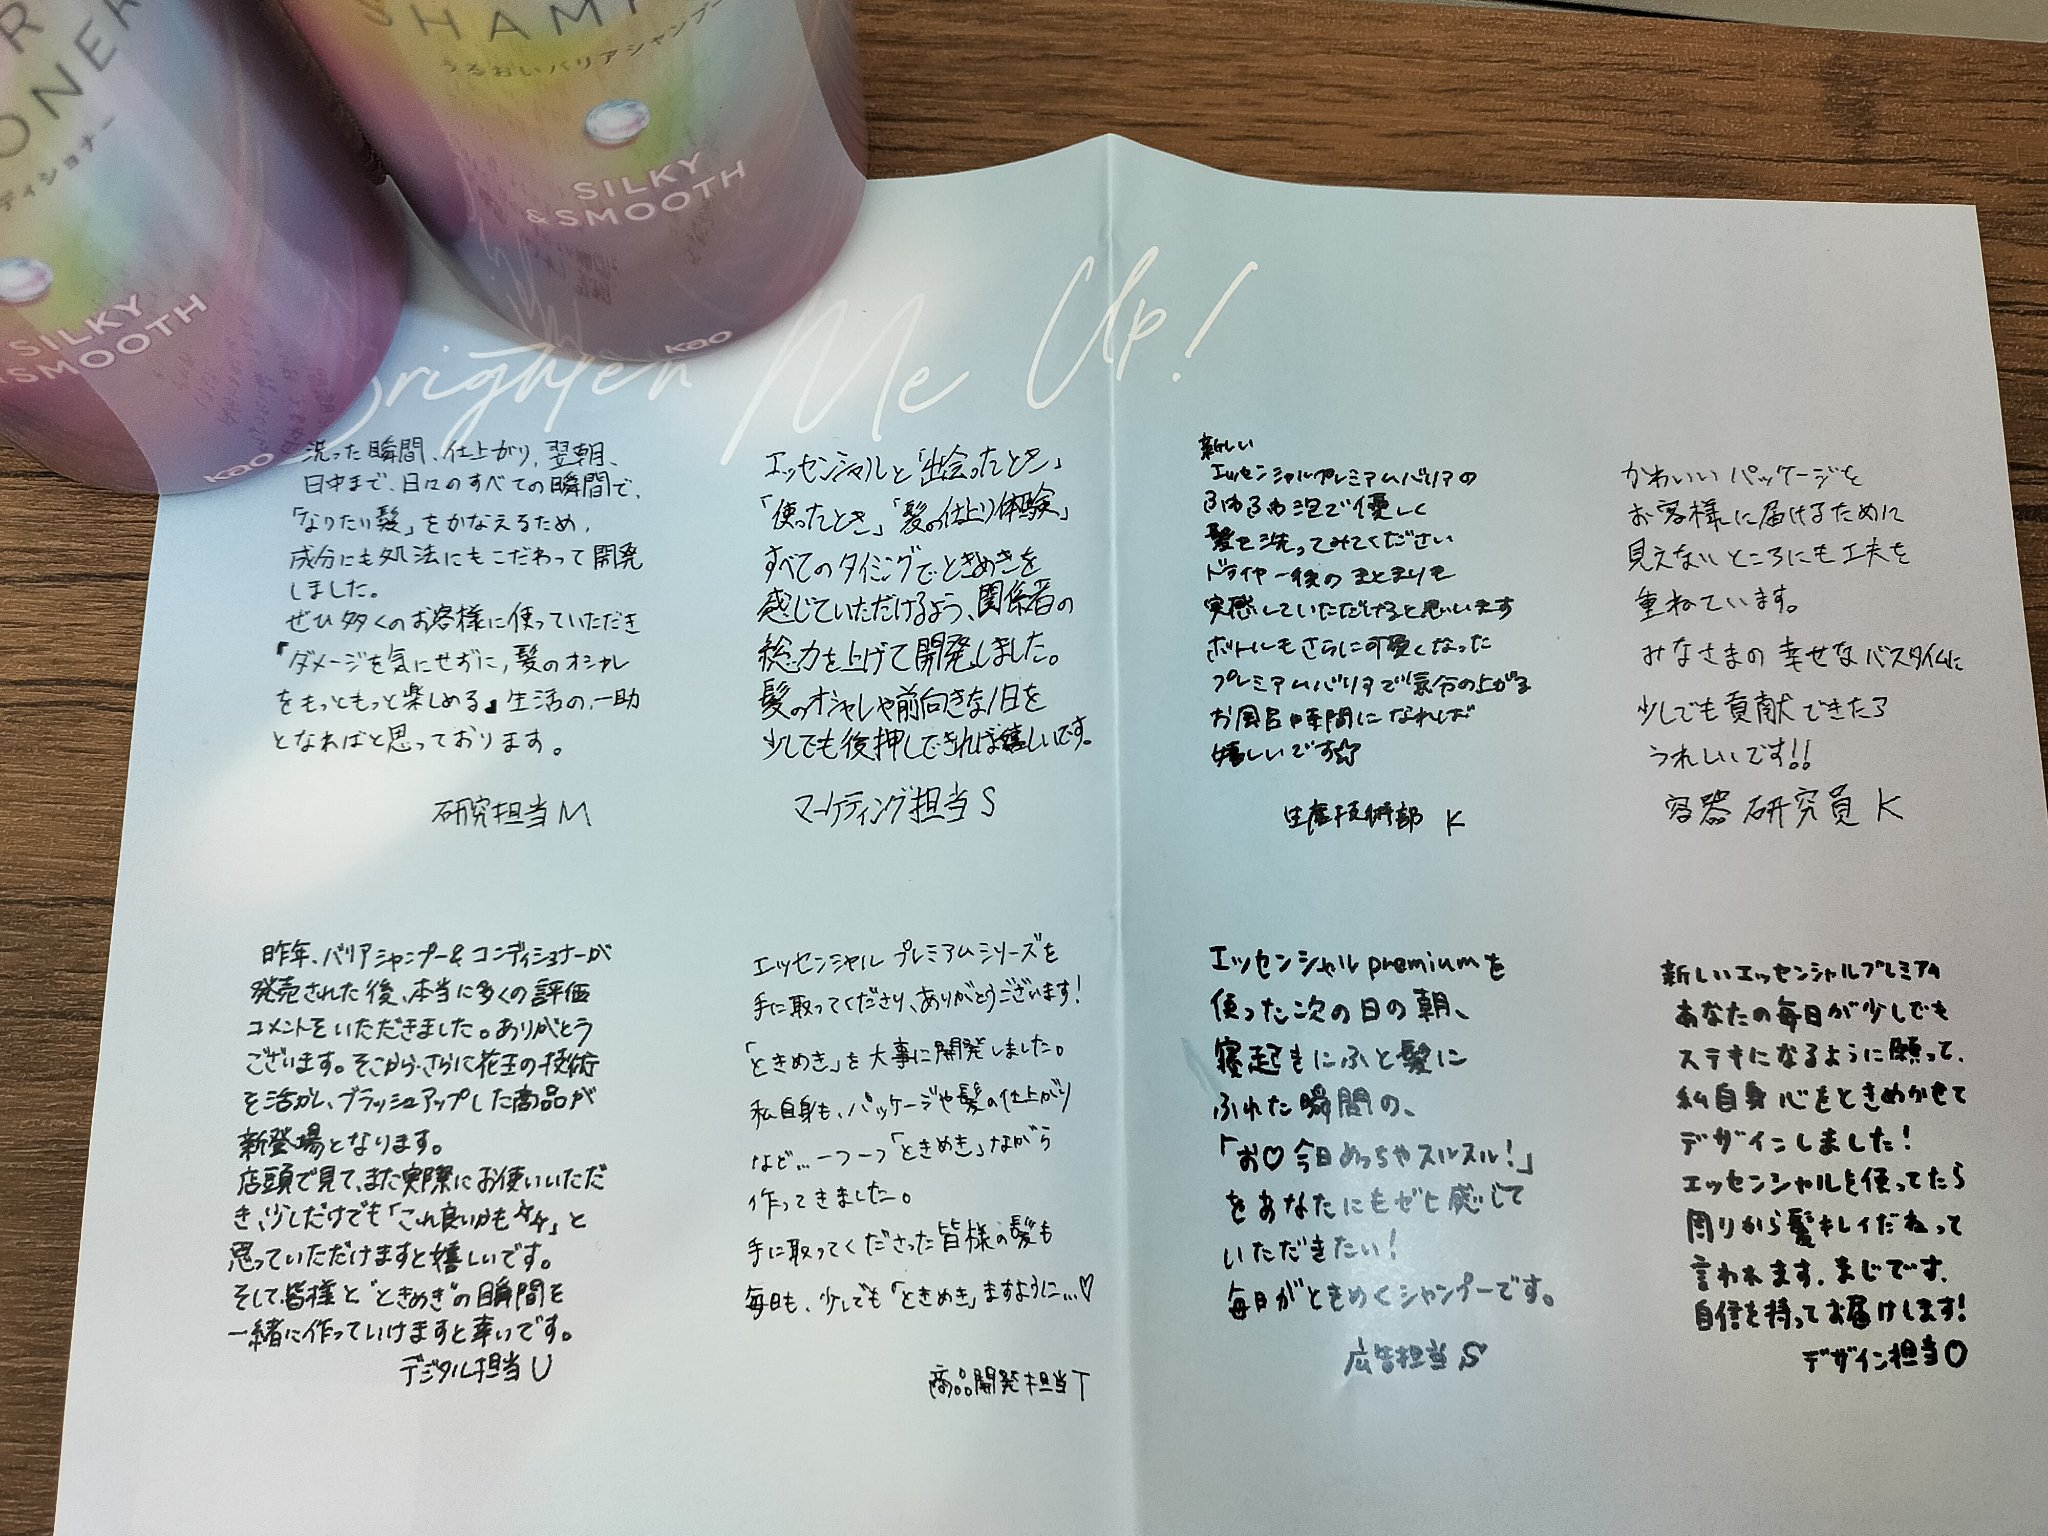 R
ONER
ディショナー
SILKY
&SMOOTH
kao
SHAMP
うるおいバリアシャンプー
SILKY
&SMOOTH
kao
Brighten Me Up!
洗った瞬間、仕上がり、翌朝、
日中まで、日々のすべての瞬間で、
「なりたい髪」をかなえるため、
成分にも処法にもこだわって開発
しました。
ぜひ多くのお客様に使っていただき
『ダメージを気にせずに、髪のオシャレ
をもっともっと楽しめる』生活の、一助
となればと思っております。
研究担当M
エッセンシャルと「出会ったとき」
「使ったとき」「髪の仕上り体験」
すべてのタイミングでときめきを
感じていただけるよう、関係者の
総力を上げて開発しました。
髪のオシャレや前向きな1日を
少しでも後押しできれば嬉しいです。
マーケティング担当 S
新しい
エッセンシャルプレミアムバリアの
ふわふわ泡で優しく
髪を洗ってみてください
ドライヤー後のまとまりを
実感していただけると思います
ボトルもさらに可愛くなった
プレミアムバリアで気分の上がる
お風呂時間になれば
嬉しいです☆
生産技術部 K
かわいいパッケージを
お客様に届けるために
見えないところにも工夫を
重ねています。
みなさまの幸せなバスタイムに
少しでも貢献できたら
うれしいです!!
容器研究員 K
昨年、バリアシャンプー&コンディショナーが
発売された後、本当に多くの評価
コメントをいただきました。ありがとう
ございます。そこから、さらに花王の技術
を活かし、ブラッシュアップした商品が
新登場となります。
店頭で見て、また実際にお使いいただ
き、少しだけでも「これ良いかも」と
思っていただけますと嬉しいです。
そして、皆様と"ときめき"の瞬間を
一緒に作っていけますと幸いです。
デジタル担当U
エッセンシャル プレミアムシリーズを
手に取ってくださり、ありがとうございます!
「ときめき」を大事に開発しました。
私自身も、パッケージや髪の仕上がり
など…一つ一つ「ときめき」ながら
作ってきました。
手に取ってくださった皆様の髪も
毎日も、少しでも「ときめき」ますように…♡
商品開発担当T
エッセンシャルpremiumを
使った次の日の朝、
寝起きにふと髪に
ふれた瞬間の、
「お♡今日めっちゃスルスル!」
をあなたにもぜヒ感じて
いただきたい!
毎日がときめくシャンプーです。
広告担当 S
新しいエッセンシャルプレミアム
あなたの毎日が少しでも
ステキになるように願って、
私自身心をときめかせて
デザインしました!
エッセンシャルを使ってたら
周りから髪キレイだねって
言われます、まじです、
自信を持ってお届けします!
デザイン担当O